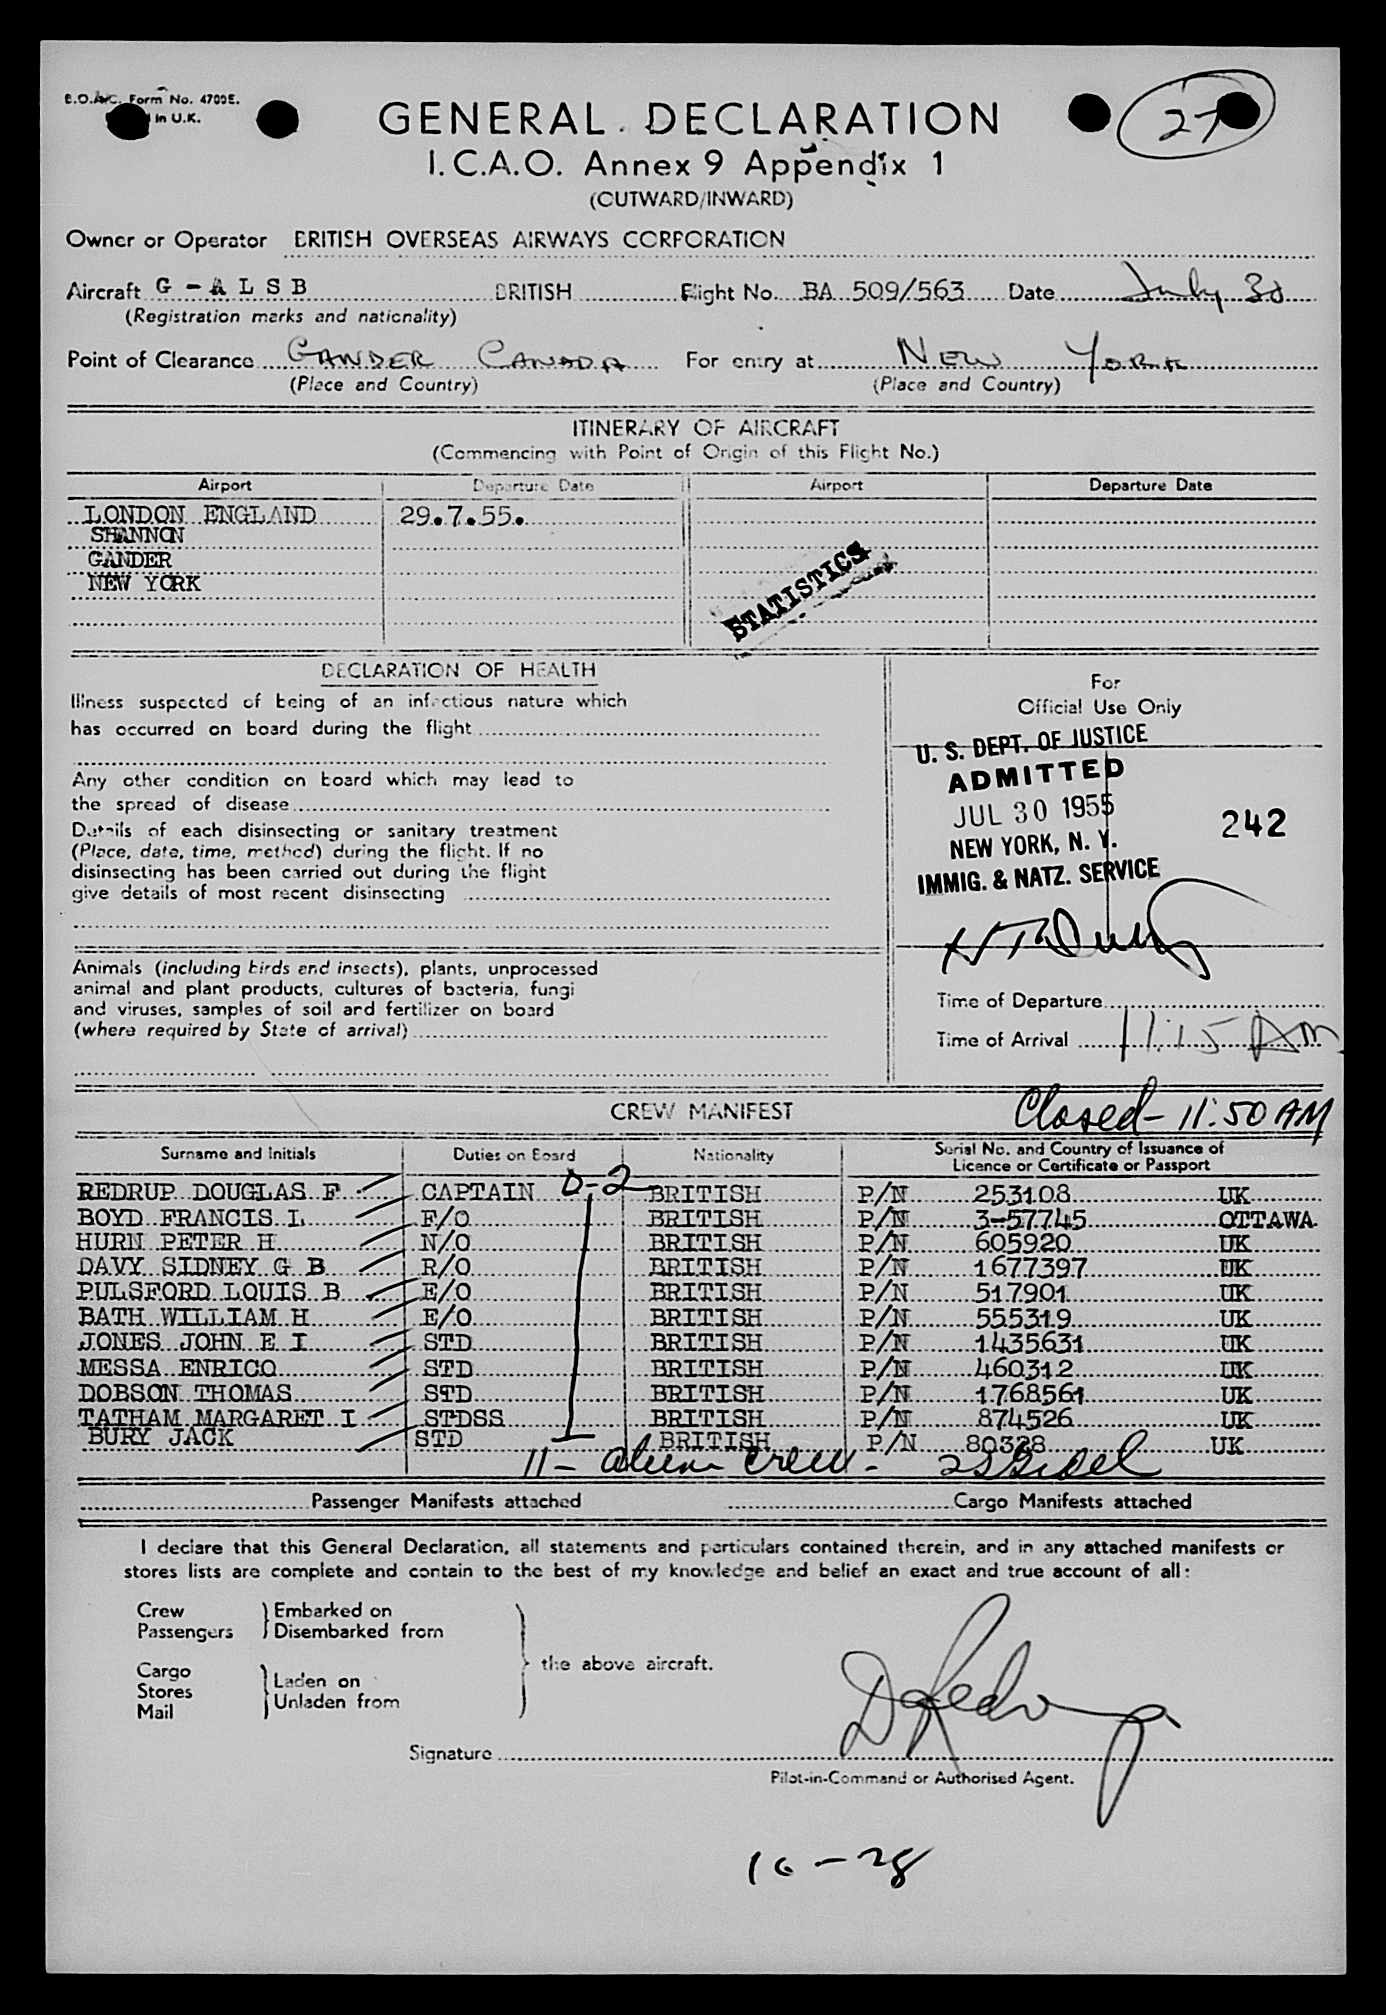 B.O.A.C. Form No. 4700E.
in U.K.
27
GENERAL DECLARATION
I.C.A.O. Annex 9 Appendix 1
(OUTWARD/INWARD)
Owner or Operator BRITISH OVERSEAS AIRWAYS CORPORATION
Aircraft G - A L S B BRITISH Flight No. BA 509/563 Date July 30
(Registration marks and nationality)
Point of Clearance GANDER CANADA For entry at NEW YORK
(Place and Country) (Place and Country)
ITINERARY OF AIRCRAFT
(Commencing with Point of Origin of this Flight No.)
Airport Departure Date Airport Departure Date
LONDON ENGLAND 29.7.55.
SHANNON
GANDER
NEW YORK
STATISTICS
DECLARATION OF HEALTH
Illness suspected of being of an infectious nature which
has occurred on board during the flight
Any other condition on board which may lead to
the spread of disease
Details of each disinsecting or sanitary treatment
(Place, date, time, method) during the flight. If no
disinsecting has been carried out during the flight
give details of most recent disinsecting
Animals (including birds and insects), plants, unprocessed
animal and plant products, cultures of bacteria, fungi
and viruses, samples of soil and fertilizer on board
(where required by State of arrival)
For
Official Use Only
U. S. DEPT. OF JUSTICE
ADMITTED
JUL 30 1955
242
NEW YORK, N. Y.
IMMIG. & NATZ. SERVICE
Time of Departure
Time of Arrival 11:15 AM
CREW MANIFEST
Closed - 11:50 AM
Surname and Initials Duties on Board Nationality Serial No. and Country of Issuance of
Licence or Certificate or Passport
D-2
REDRUP DOUGLAS F CAPTAIN BRITISH P/N 253108 UK
BOYD FRANCIS L F/O BRITISH P/N 3-57745 OTTAWA
HURN PETER H N/O BRITISH P/N 605920 UK
DAVY SIDNEY G B R/O BRITISH P/N 1677397 UK
PULSFORD LOUIS B E/O BRITISH P/N 517901 UK
BATH WILLIAM H E/O BRITISH P/N 555319 UK
JONES JOHN E I STD BRITISH P/N 1435631 UK
MESSA ENRICO STD BRITISH P/N 460312 UK
DOBSON THOMAS STD BRITISH P/N 1768561 UK
TATHAM MARGARET I STDSS BRITISH P/N 874526 UK
BURY JACK STD BRITISH P/N 80328 UK
11 - alien crew -
Passenger Manifests attached Cargo Manifests attached
I declare that this General Declaration, all statements and particulars contained therein, and in any attached manifests or
stores lists are complete and contain to the best of my knowledge and belief an exact and true account of all:
Crew
Passengers
Embarked on
Disembarked from
Cargo
Stores
Mail
Laden on
Unladen from
the above aircraft.
Signature D F Redrup
Pilot-in-Command or Authorised Agent.
10 - 28